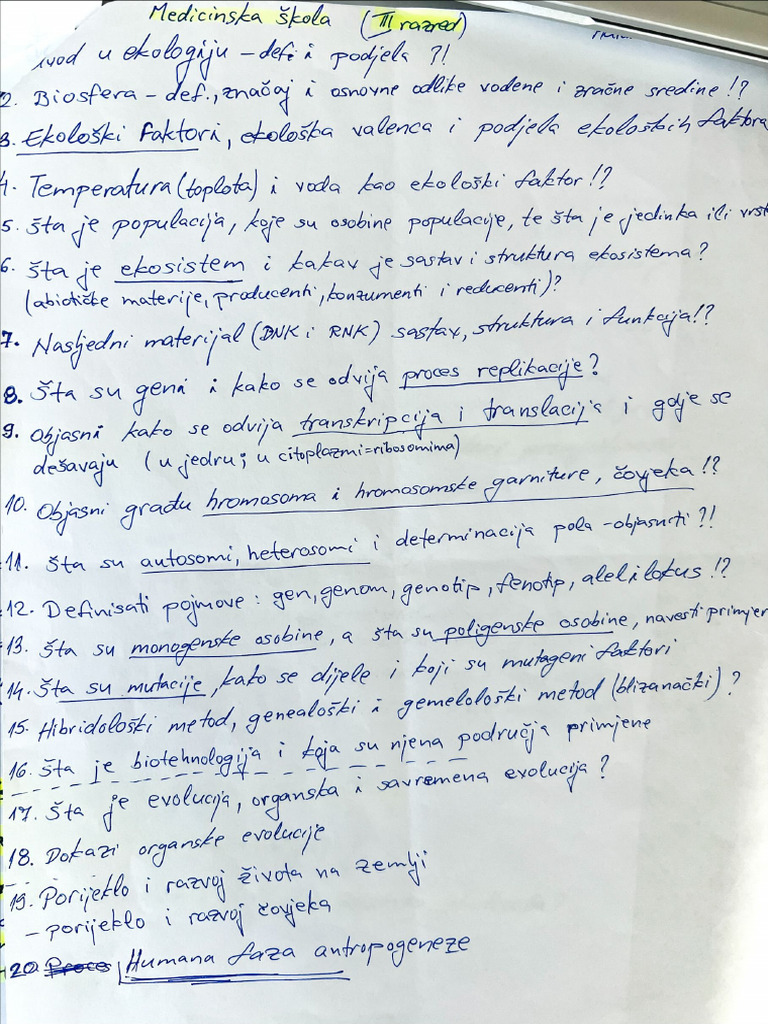 Medicinska škola (III razred)
uvod u ekologiju - def. i podjela ?!
2. Biosfera - def., značaj i osnovne odlike vodene i zračne sredine !?
3. Ekološki faktori, ekološka valenca i podjela ekoloških faktora
4. Temperatura (toplota) i voda kao ekološki faktor !?
5. Šta je populacija, koje su osobine populacije, te šta je jedinka ili vrst
6. Šta je ekosistem i kakav je sastav i struktura ekosistema?
(abiotičke materije, producenti, konzumenti i reducenti)?
7. Nasljedni materijal (DNK i RNK) sastav, struktura i funkcija!?
8. Šta su geni i kako se odvija proces replikacije?
9. Objasni kako se odvija transkripcija i translacija i gdje se
dešavaju (u jedru; u citoplazmi=ribosomima)
10. Objasni građu hromosoma i hromosomske garniture, čovjeka !?
11. Šta su autosomi, heterosomi i determinacija pola - objasniti ?!
12. Definisati pojmove : gen, genom, genotip, fenotip, alel i lokus !?
13. Šta su monogenske osobine, a šta su poligenske osobine, navesti primjer
14. Šta su mutacije, kako se dijele i koji su mutageni faktori
15. Hibridološki metod, genealoški i gemelološki metod (blizanački) ?
16. Šta je biotehnologija i koja su njena područja primjene
17. Šta je evolucija, organska i savremena evolucija ?
18. Dokazi organske evolucije
19. Porijeklo i razvoj života na zemlji
- porijeklo i razvoj čovjeka
20. Proces Humana faza antropogeneze